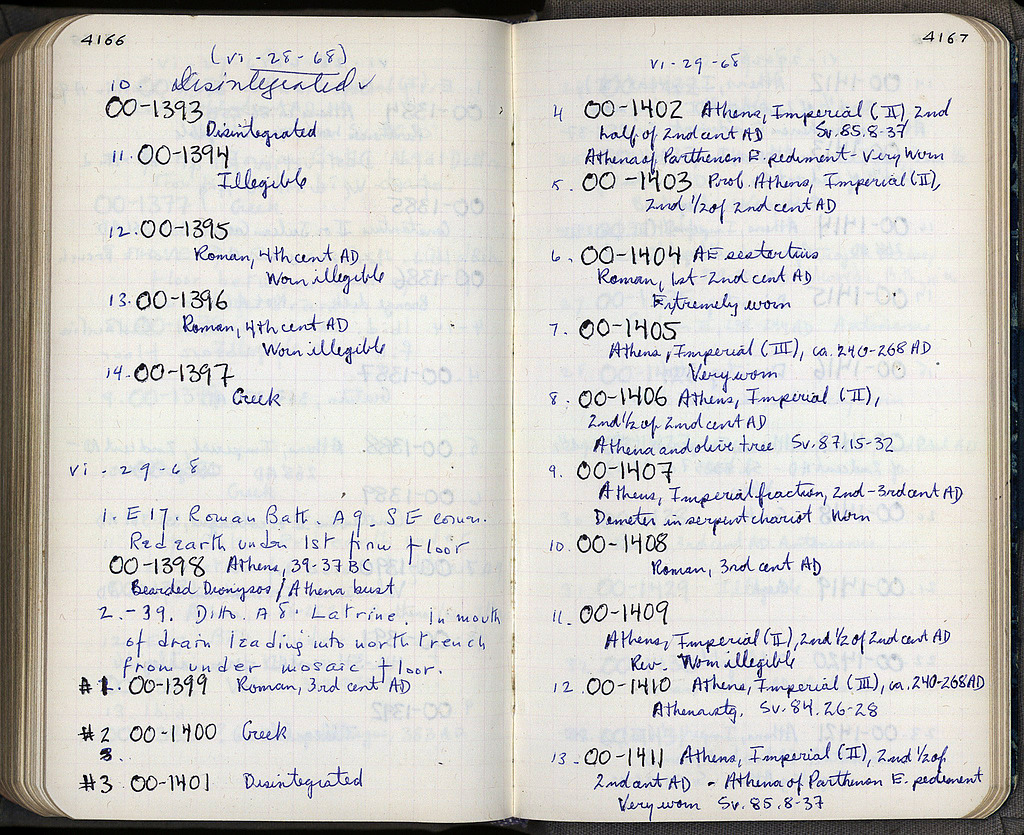 4166
(vi - 28 - 68)
10. Disintegrated ✓
OO-1393
Disintegrated
11. OO-1394
Illegible
12. OO-1395
Roman, 4th cent AD
Worn illegible
13. OO-1396
Roman, 4th cent AD
Worn illegible
14. OO-1397
Greek
vi - 29 - 68
1. E 17. Roman Bath. A 9. SE corner.
Red earth under 1st firm floor
OO-1398 Athens, 39-37 BC
Bearded Dionysos / Athena bust
2. - 39. Ditto. A 8. Latrine. In mouth
of drain leading into north trench
from under mosaic floor.
#1. OO-1399 Roman, 3rd cent AD
#2 OO-1400 Greek
3.
#3 OO-1401 Disintegrated
4167
vi - 29 - 68
4 OO-1402 Athens, Imperial (II), 2nd
half of 2nd cent AD Sv. 85.8-37
Athena of Parthenon E. pediment - Very Worn
5. OO-1403 Prob. Athens, Imperial (II),
2nd ½ of 2nd cent AD
6. OO-1404 AE sestertius
Roman, 1st-2nd cent AD
Extremely worn
7. OO-1405
Athens, Imperial (III), ca. 240-268 AD
Very worn
8. OO-1406 Athens, Imperial (II),
2nd ½ of 2nd cent AD
Athena and olive tree Sv. 87.15-32
9. OO-1407
Athens, Imperial fraction, 2nd-3rd cent AD
Demeter in serpent chariot Worn
10. OO-1408
Roman, 3rd cent AD
11. OO-1409
Athens, Imperial (II), 2nd ½ of 2nd cent AD
Rev. Worn illegible
12. OO-1410 Athens, Imperial (III), ca. 240-268 AD
Athena stg. Sv. 84.26-28
13. OO-1411 Athens, Imperial (II), 2nd ½ of
2nd cent AD - Athena of Parthenon E. pediment
Very worn Sv. 85.8-37